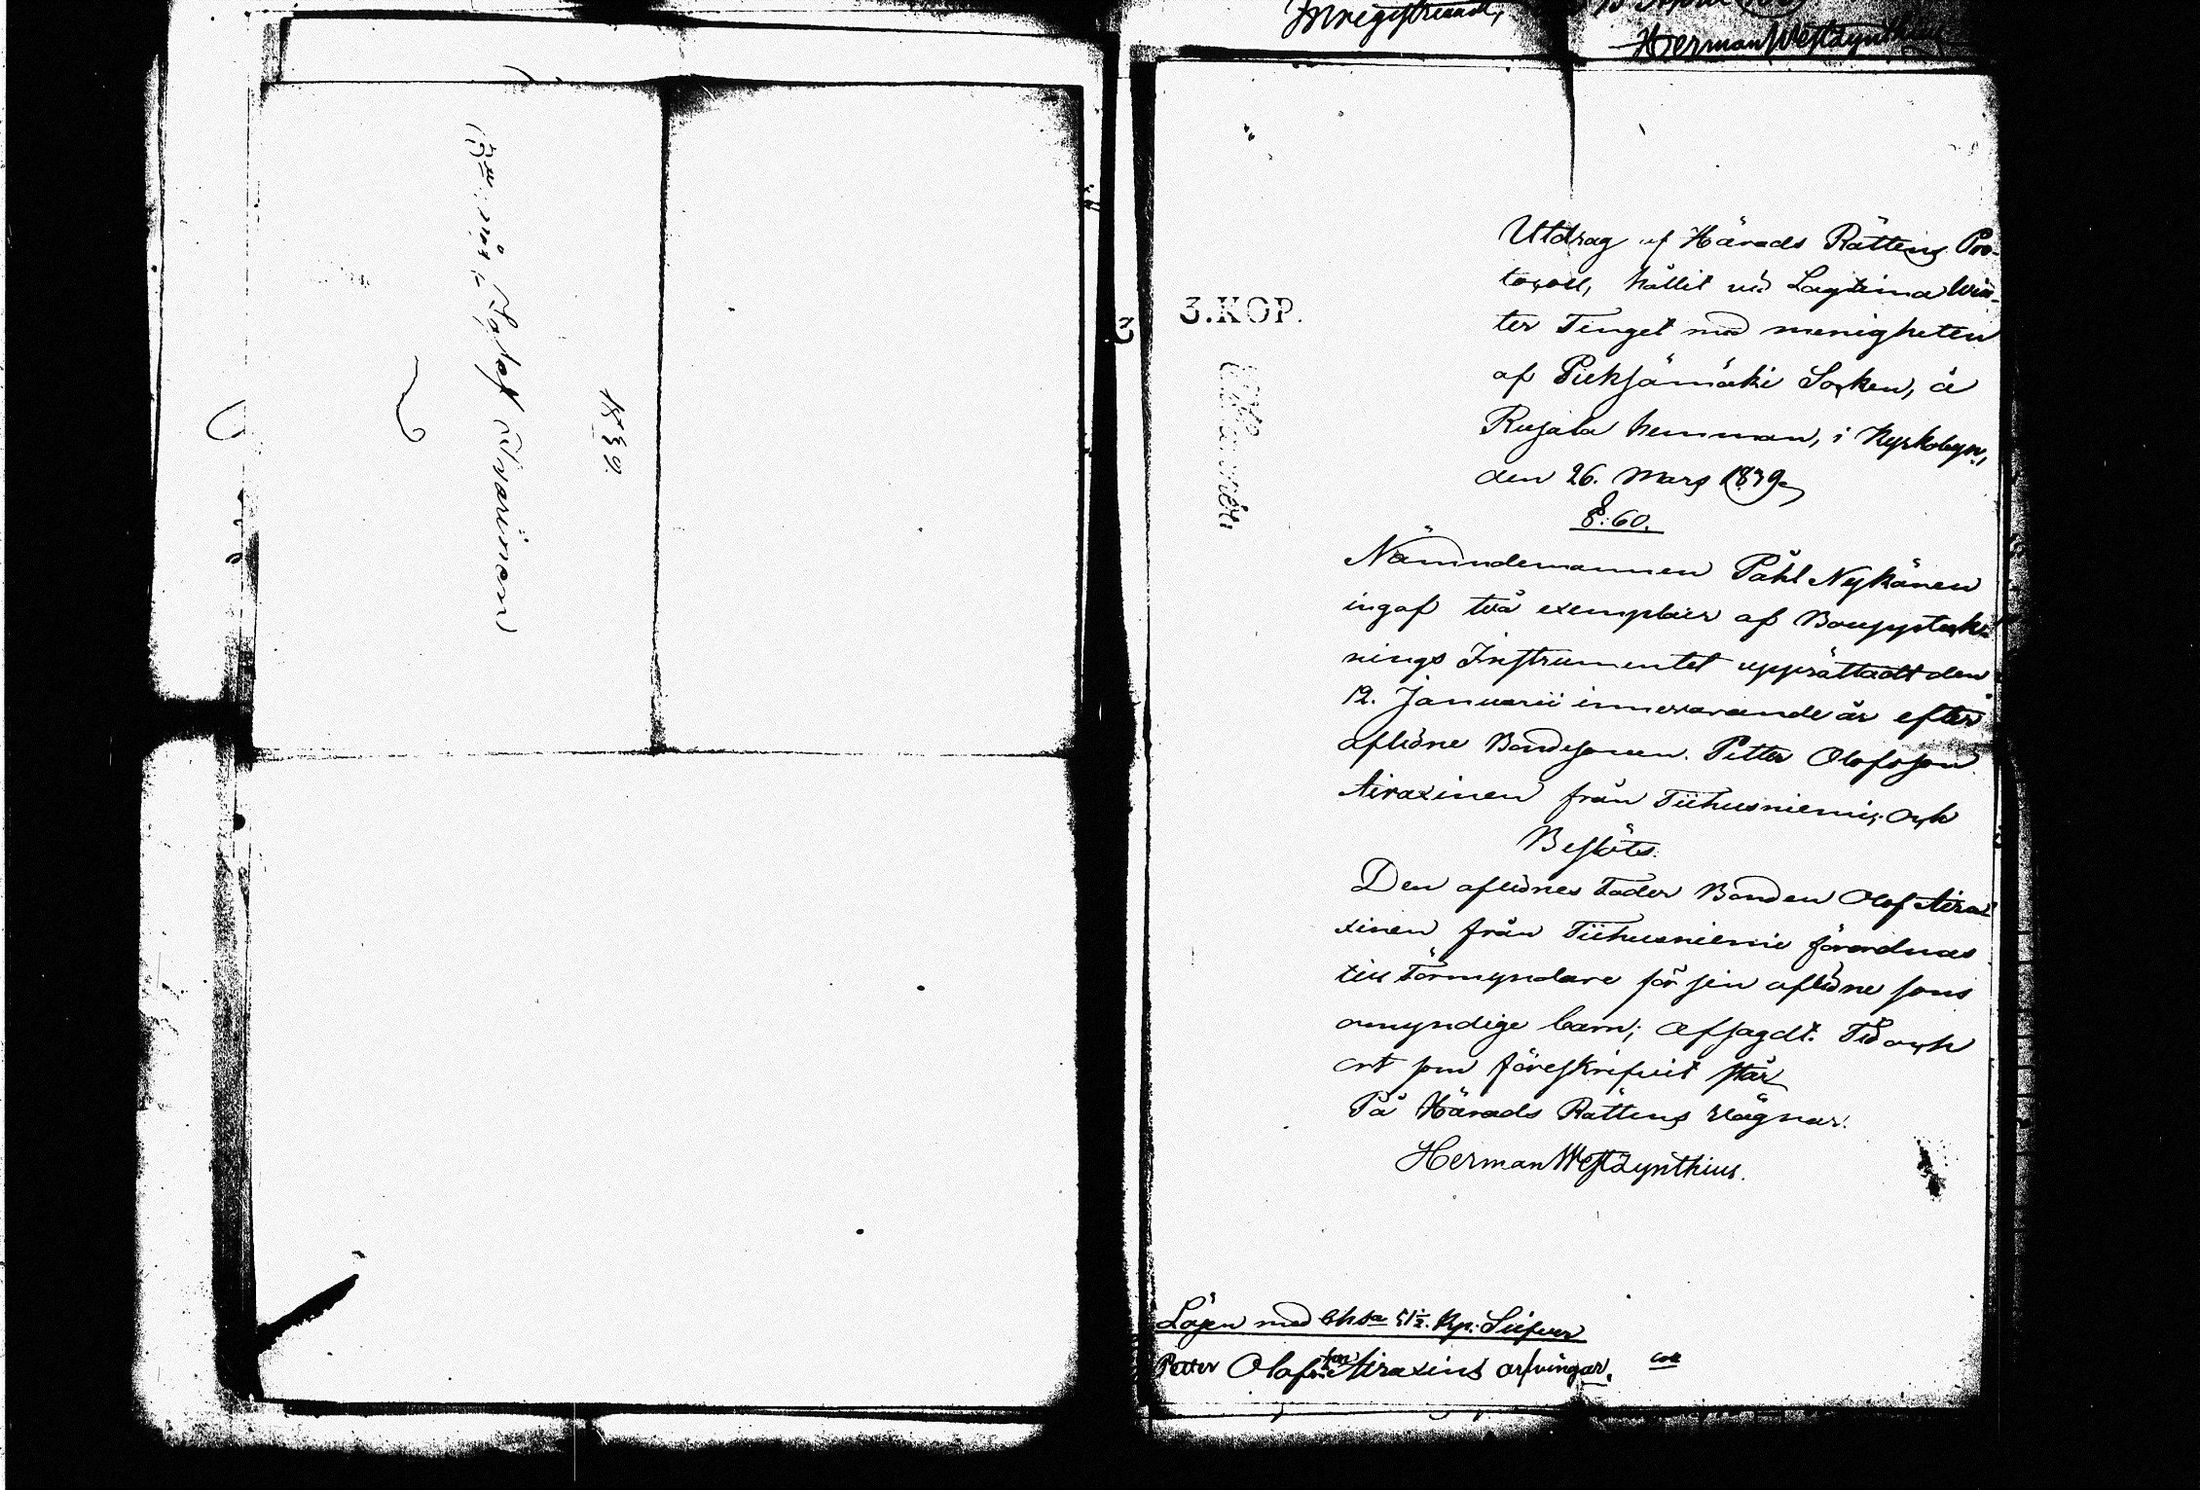 1839.
Inregistreradt,
Herman Westzynthius
3.KOP.
Utdrag af Härads Rättens Pro-
tocoll, hållit vid Lagtima Win-
ter Tinget med menigheten
af Pieksämäki Socken, å
Rujala hemman, i Kyrkobyn,
den 26. Mars 1839.
§:60.
Nämndemannen Påhl Nykänen
ingaf två exemplair af Bouppteck-
nings Instrumentet upprättadt den
12. Januarii innevarande år efter
aflidne Bondesonen Petter Olofsson
Airaxinen från Tiihusniemi; och
Beslöts:
Den aflidnes Fader Bonden Olof Airax-
xinen från Tiihusniemi förordnas
till Förmyndare för sin aflidne sons
omyndige barn; Afsagdt. Tid och
ort som föreskrifvit står
På Härads Rättens vägnar:
Herman Westzynthius.
Lösen med 51½. Kop: Silfver
Petter Olofsson Airaxins arfvingar.